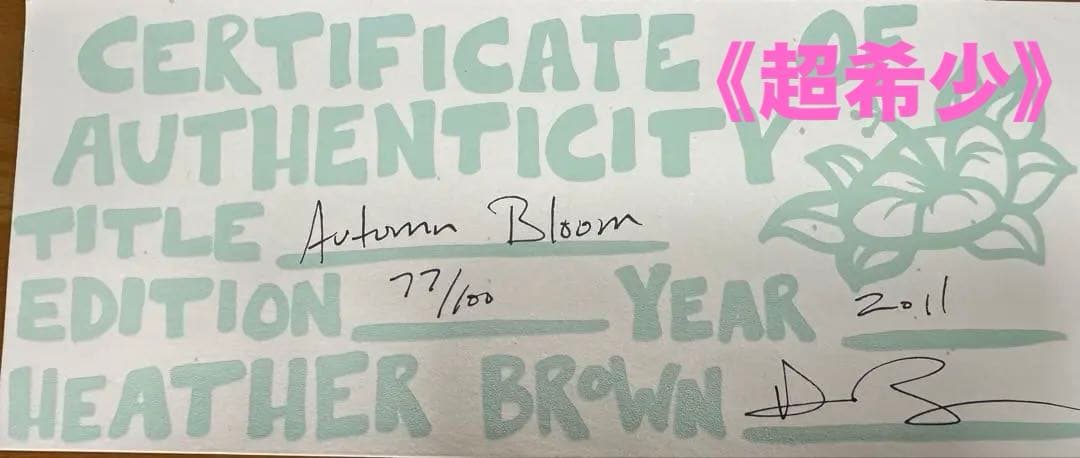 CERTIFICATE OF
《超希少》
AUTHENTICITY
TITLE Autumn Bloom
EDITION 77/100 YEAR 2011
HEATHER BROWN